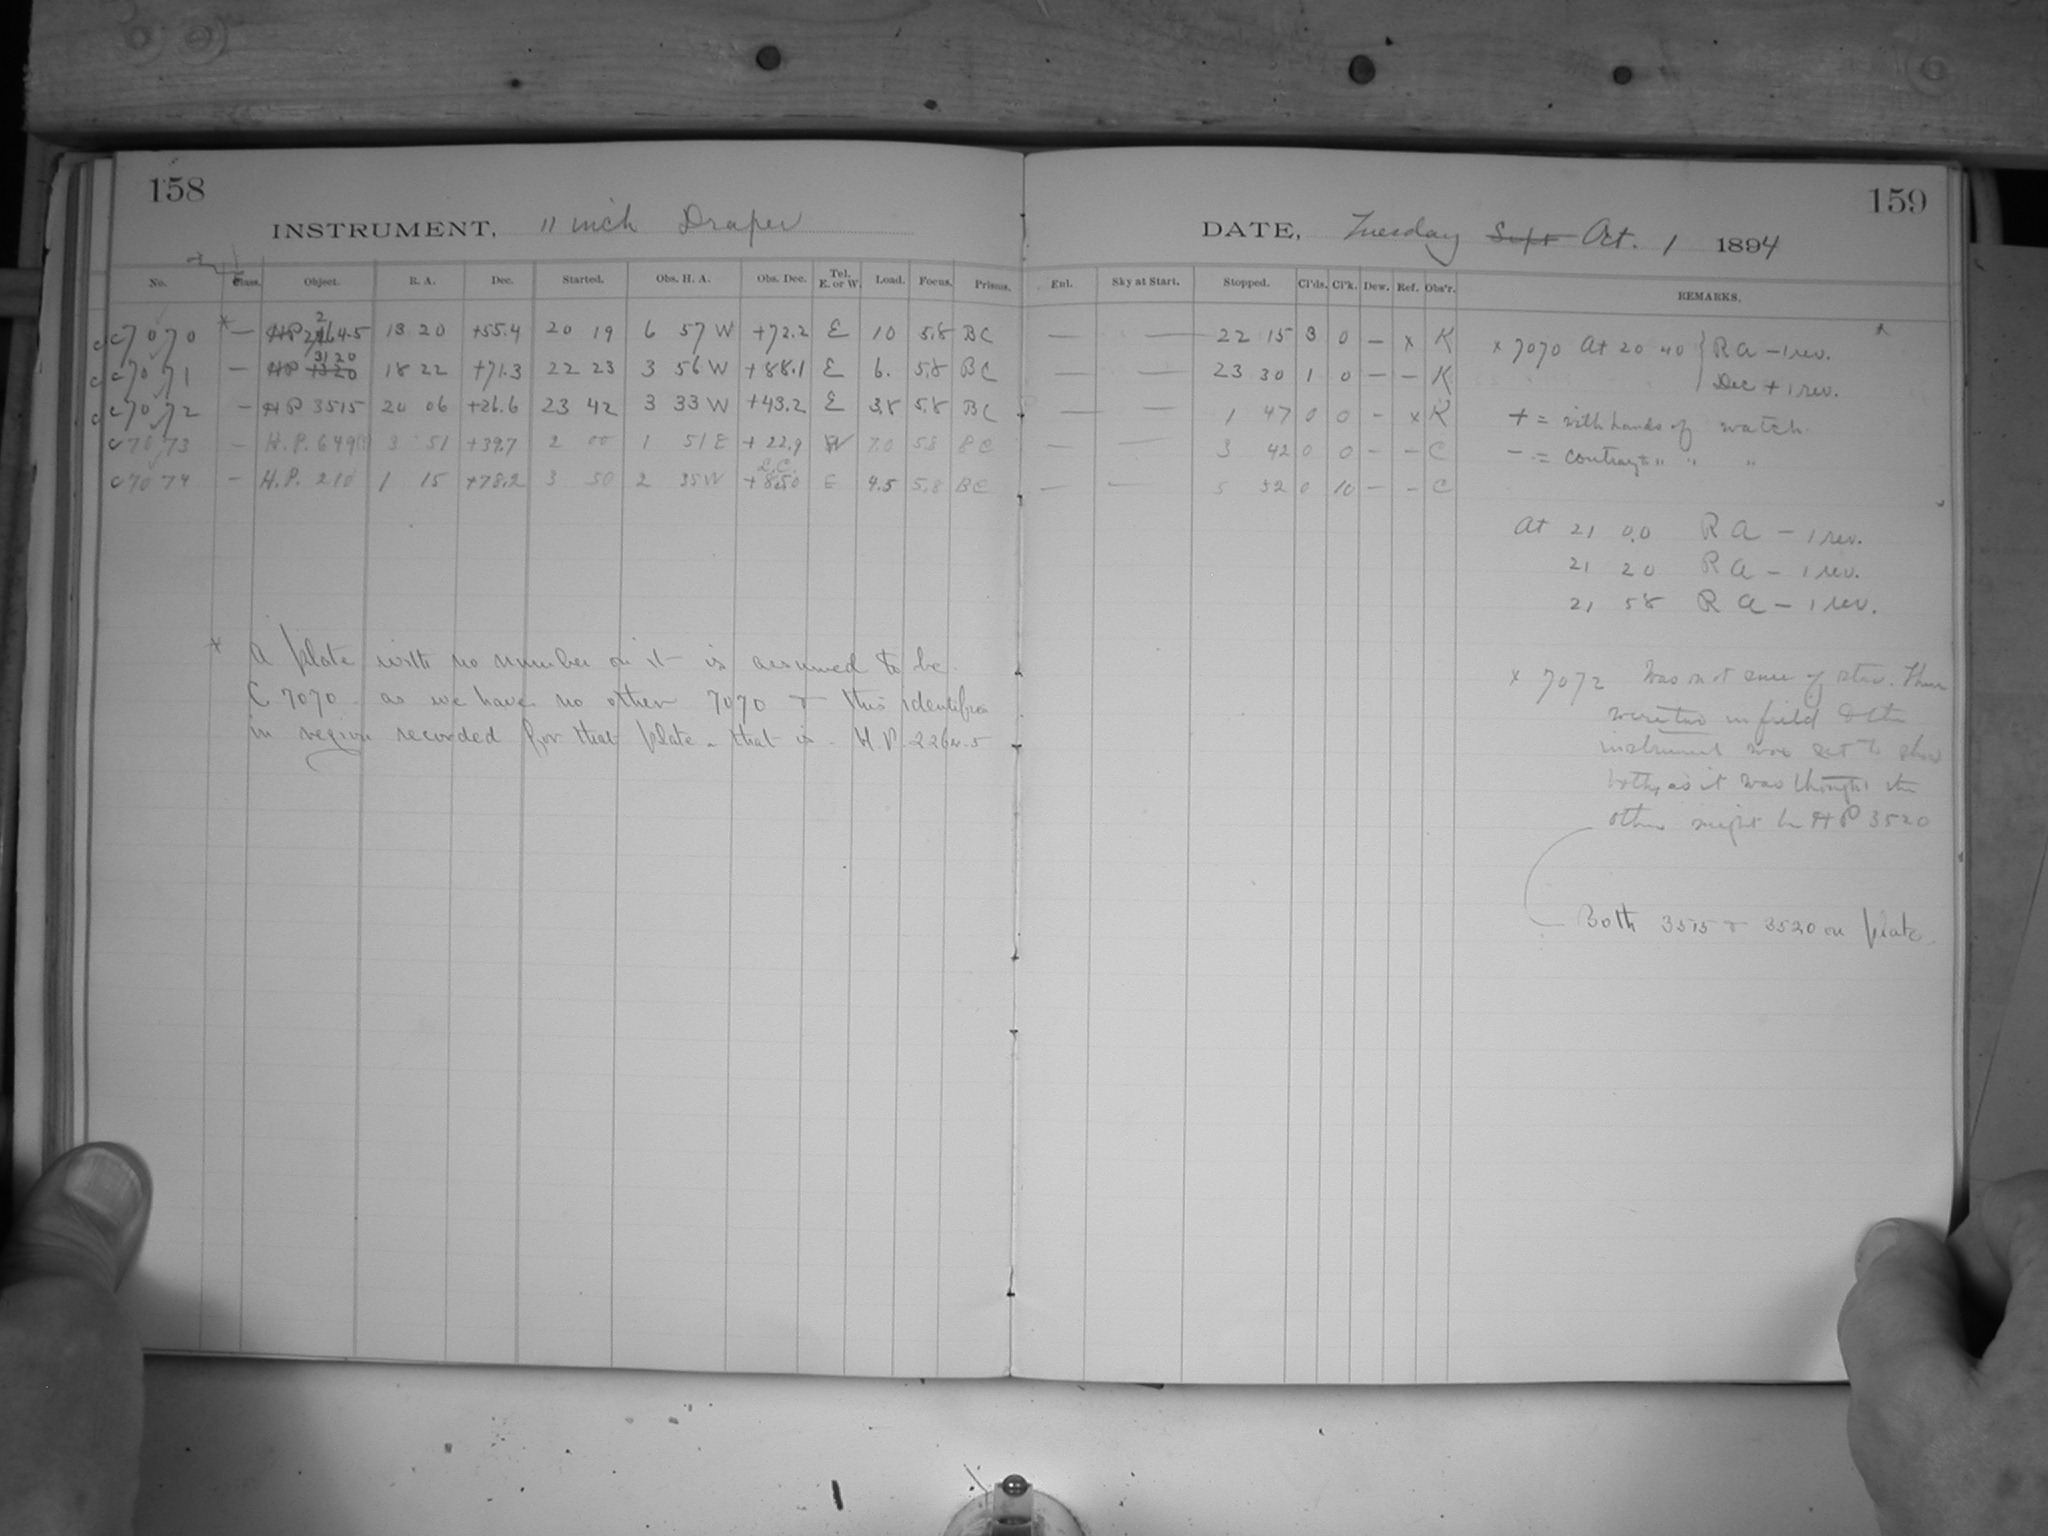 158
INSTRUMENT, 11 inch Draper
No. Class. Object. R. A. Dec. Started. Obs. H. A. Obs. Dec. Tel. E. or W. Load. Focus. Prisms.
c7070 * — HP 2264.5 13 20 +55.4 20 19 6 57 W +72.2 E 10 5.8 BC
c7071 — HP 3120 18 22 +71.3 22 23 3 56 W +88.1 E 6. 5.8 BC
c7072 — HP 3515 20 06 +26.6 23 42 3 33 W +43.2 E 3.8 5.8 BC
c7073 — H.P. 649 3 51 +39.7 2 00 1 51 E +22.9 W 7.0 5.8 BC
c7074 — H.P. 210 1 15 +78.2 3 50 2 35 W E 4.5 5.8 BC
* A plate with no number on it is assumed to be
C 7070 as we have no other 7070 & this identifies
in region recorded for that plate – that is – H.P. 2264.5
159
DATE, Tuesday Sept Oct. 1 1894
Enl. Sky at Start. Stopped. Cl'ds. Cl'k. Dew. Ref. Obs'r. REMARKS.
— — 22 15 3 0 – x K
— — 23 30 1 0 – – K
— — 1 47 0 0 – x K
— — 3 42 0 0 – – C
— — 5 52 0 10 – – C
x 7070 At 20 40 { RA – 1 rev.
Dec + 1 rev.
+ = with hands of watch.
– = contrary " " "
At 21 00 RA – 1 rev.
21 20 RA – 1 rev.
21 58 RA – 1 rev.
x 7072 Was not sure of star. There
were two in field & the
instrument was set to show
both, as it was thought the
other might be HP 3520
Both 3515 & 3520 on plate.